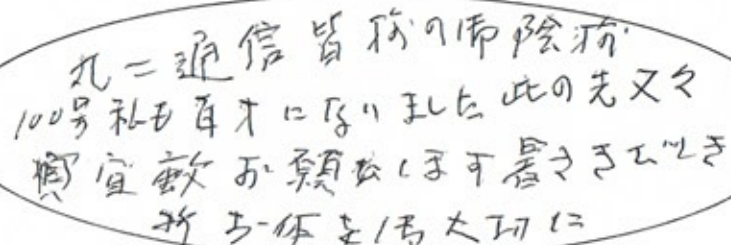 九二通信皆様の御陰様
100号私も百才になりました此の先又々
宜敷お願致します暑さきびしき
折お体を御大切に